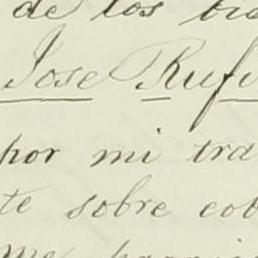 de los bie
Jose Rufi
por mi tra
te sobre cob